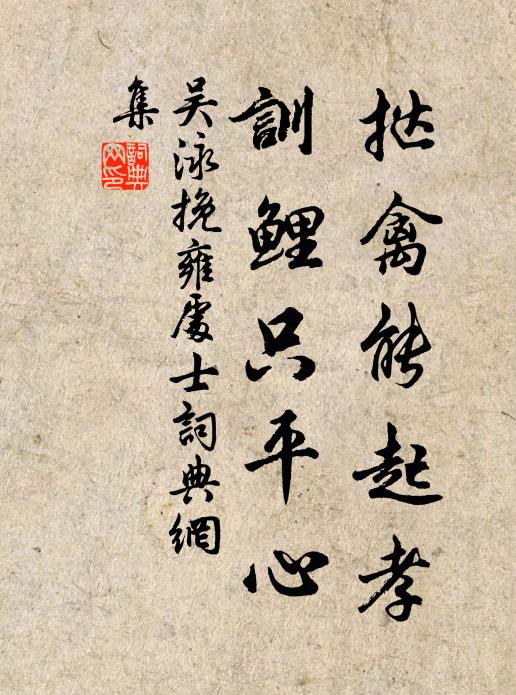 挞禽能起孝
訓鯉只平心
吴泳挽雍處士詞典網
集
詞典網印